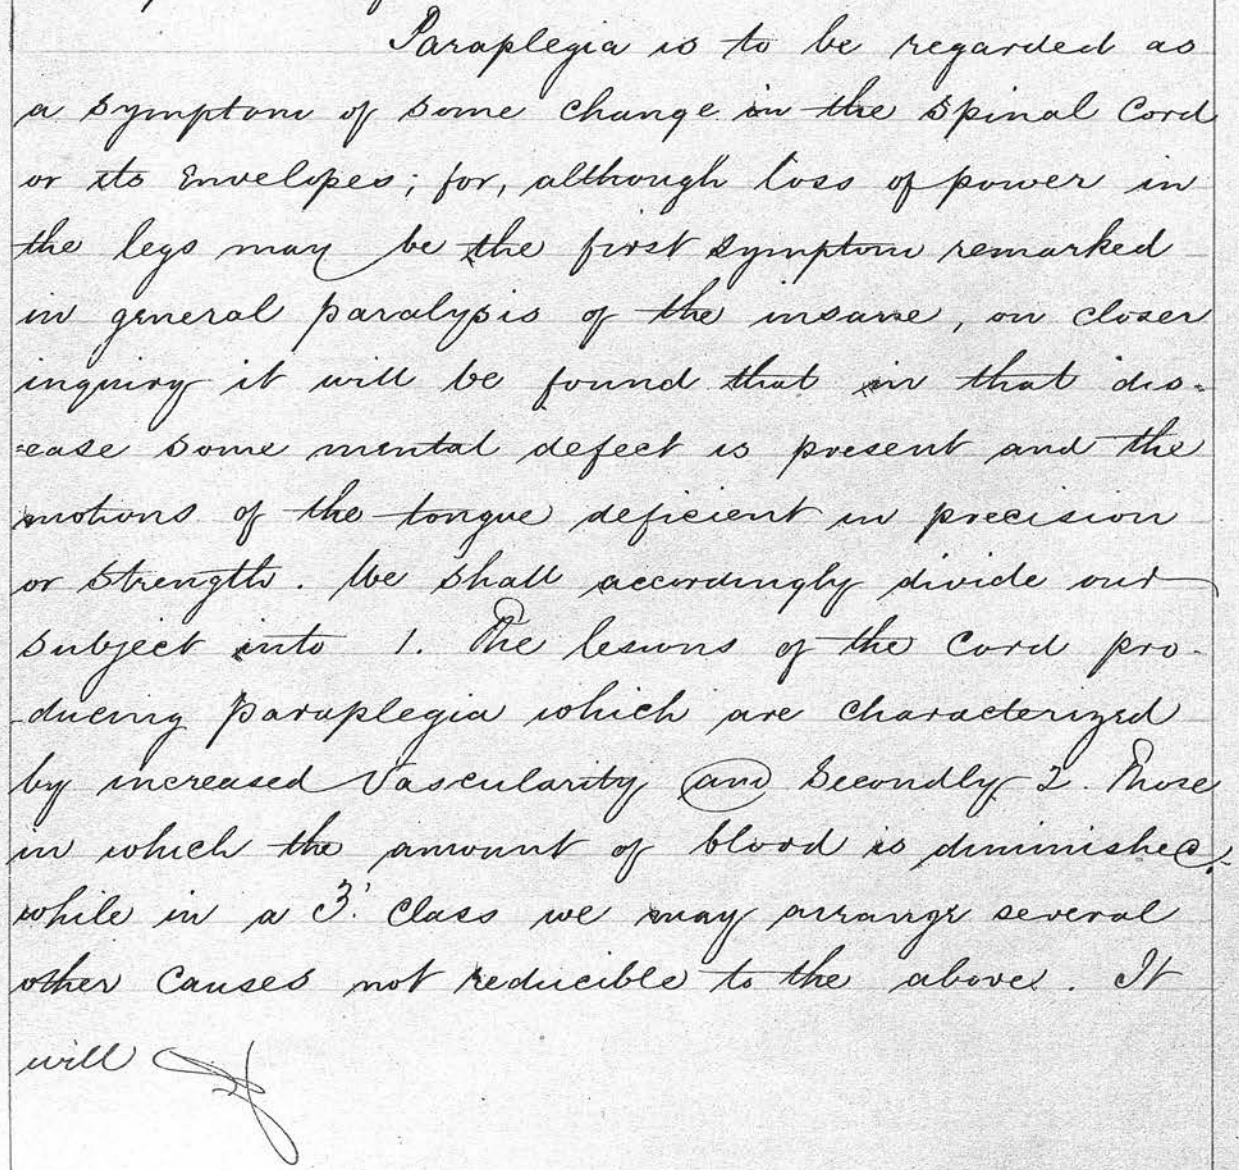 Paraplegia is to be regarded as
a symptom of some change in the spinal Cord
or its Envelopes; for, although loss of power in
the legs may be the first symptom remarked
in general paralysis of the insane, on closer
inquiry it will be found that in that dis-
-ease some mental defect is present and the
motions of the tongue deficient in precision
or strength. We shall accordingly divide our
subject into 1. The lesions of the Cord pro-
-ducing paraplegia which are characterized
by increased Vascularity and Secondly 2. Those
in which the amount of blood is diminished.
while in a 3. Class we may arrange several
other Causes not reducible to the above. It
will